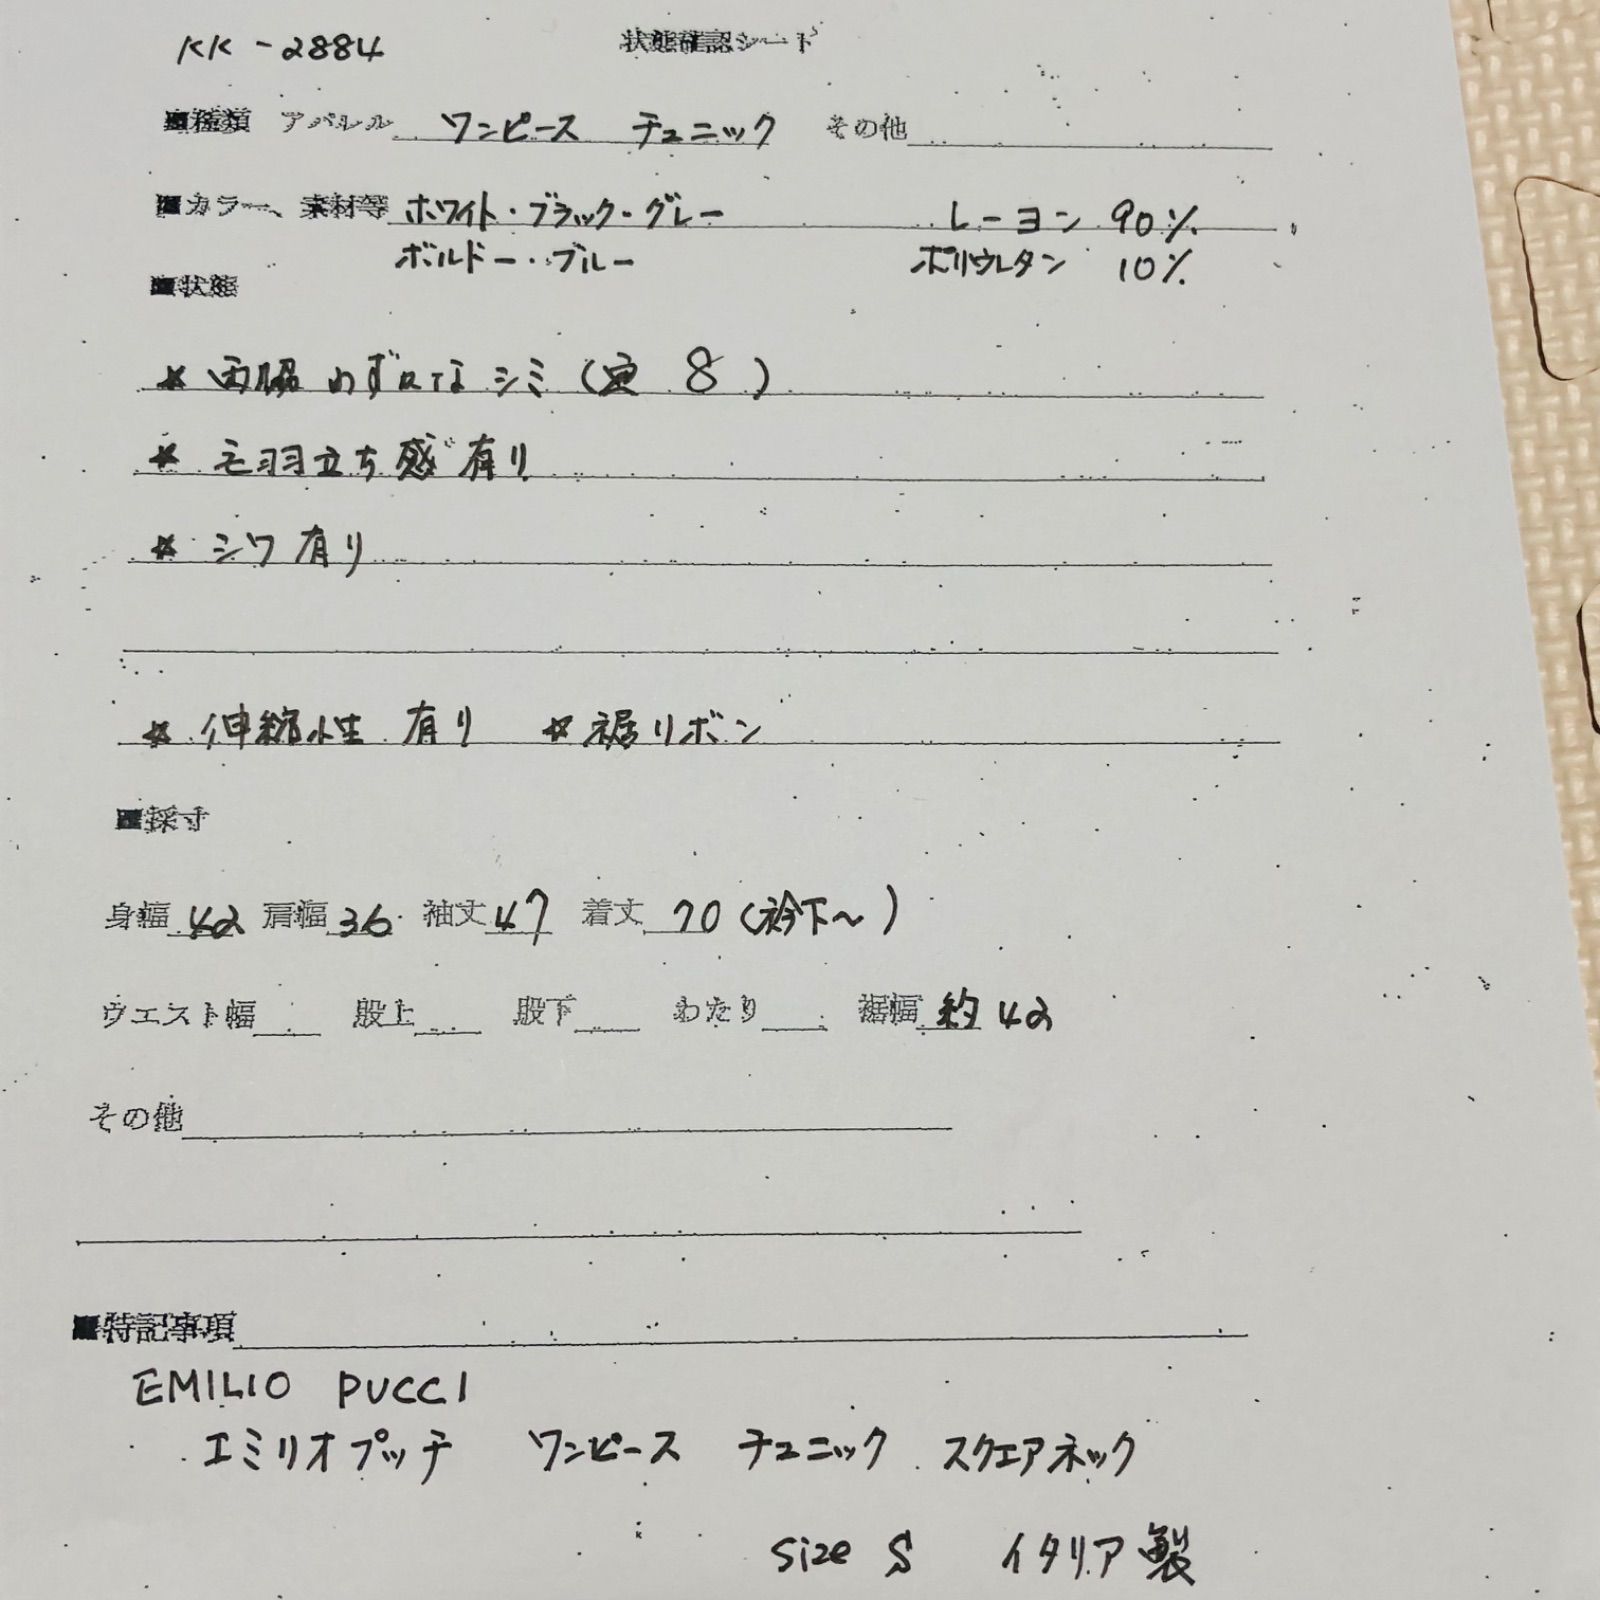 KK-2884 状態確認シート
■種類 アパレル ワンピース チュニック その他
■カラー、素材等 ホワイト・ブラック・グレー レーヨン 90%
ボルドー・ブルー ポリウレタン 10%
■状態
★ 両脇 わずかなシミ( 8 )
★ 毛羽立ち感有り
★ シワ有り
★ 伸縮性 有り ★裾リボン
■採寸
身幅 42 肩幅 36 袖丈 47 着丈 70 (衿下〜)
ウエスト幅 股上 股下 わたり 裾幅 約42
その他
■特記事項
EMILIO PUCCI
エミリオプッチ ワンピース チュニック スクエアネック
size S イタリア製